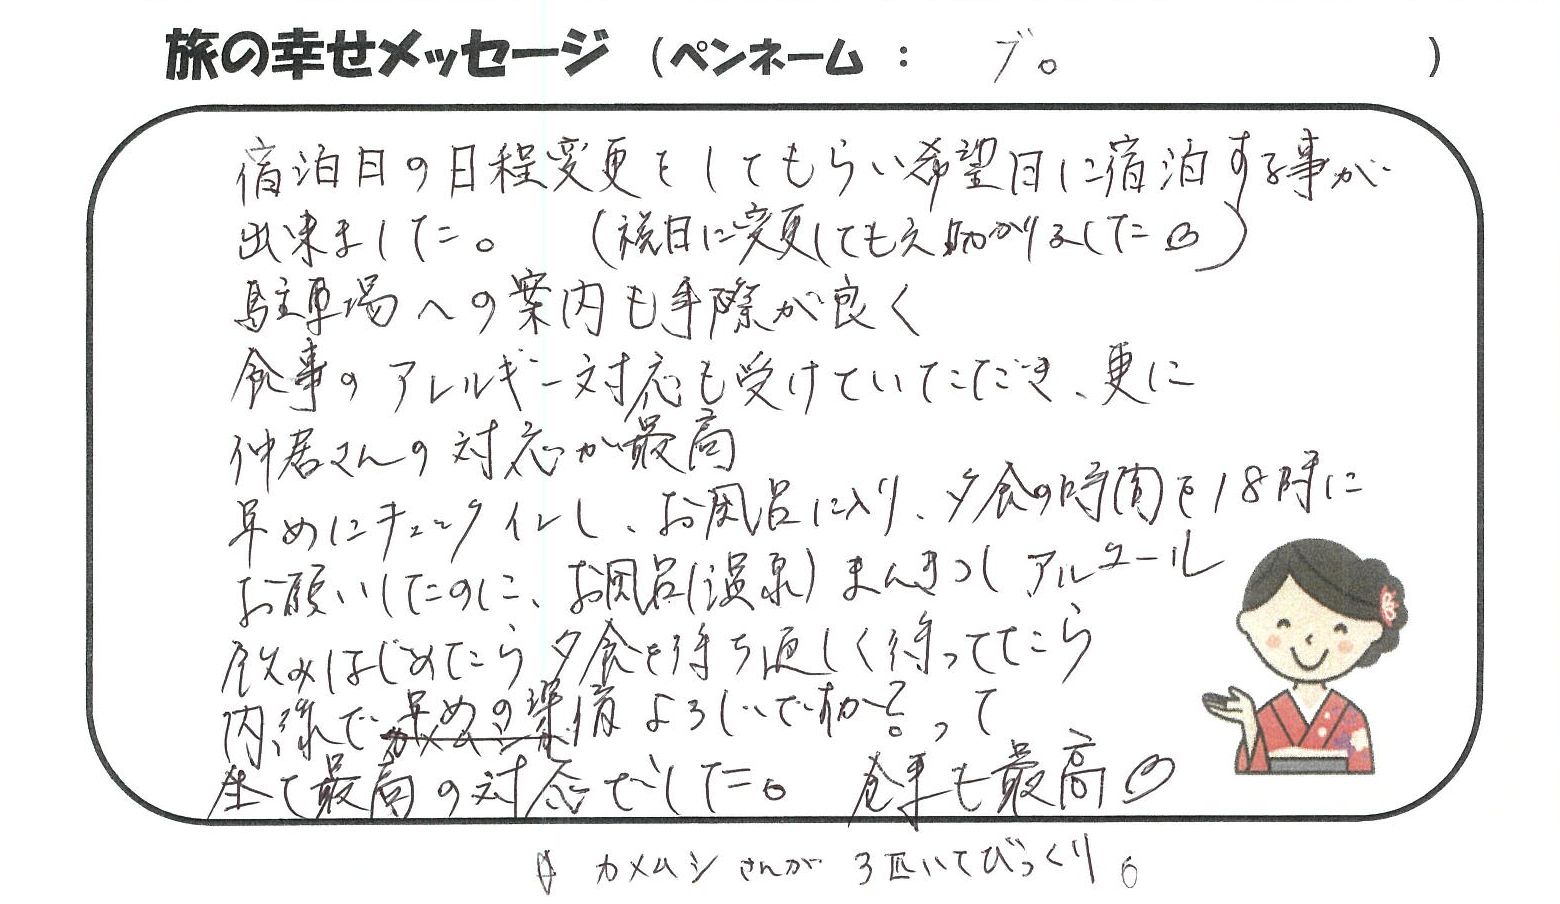 旅の幸せメッセージ (ペンネーム : ブ。 )
宿泊日の日程変更をしてもらい希望日に宿泊する事が
出来ました。 (祝日に変更してもえ助かりました)
駐車場への案内も手際が良く
食事のアレルギー対応も受けていただき、更に
仲居さんの対応が最高
早めにチェックインし、お風呂に入り、夕食の時間を18時に
お願いしたのに、お風呂(温泉)まんきつしアルコール
飲みはじめたら夕食を待ち遠しく待ってたら
内線で早めの準備よろしいですか?って
全て最高の対応でした。 食事も最高
カメムシさんが3匹いてびっくり